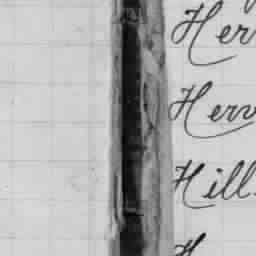 Her
Herv
Hill